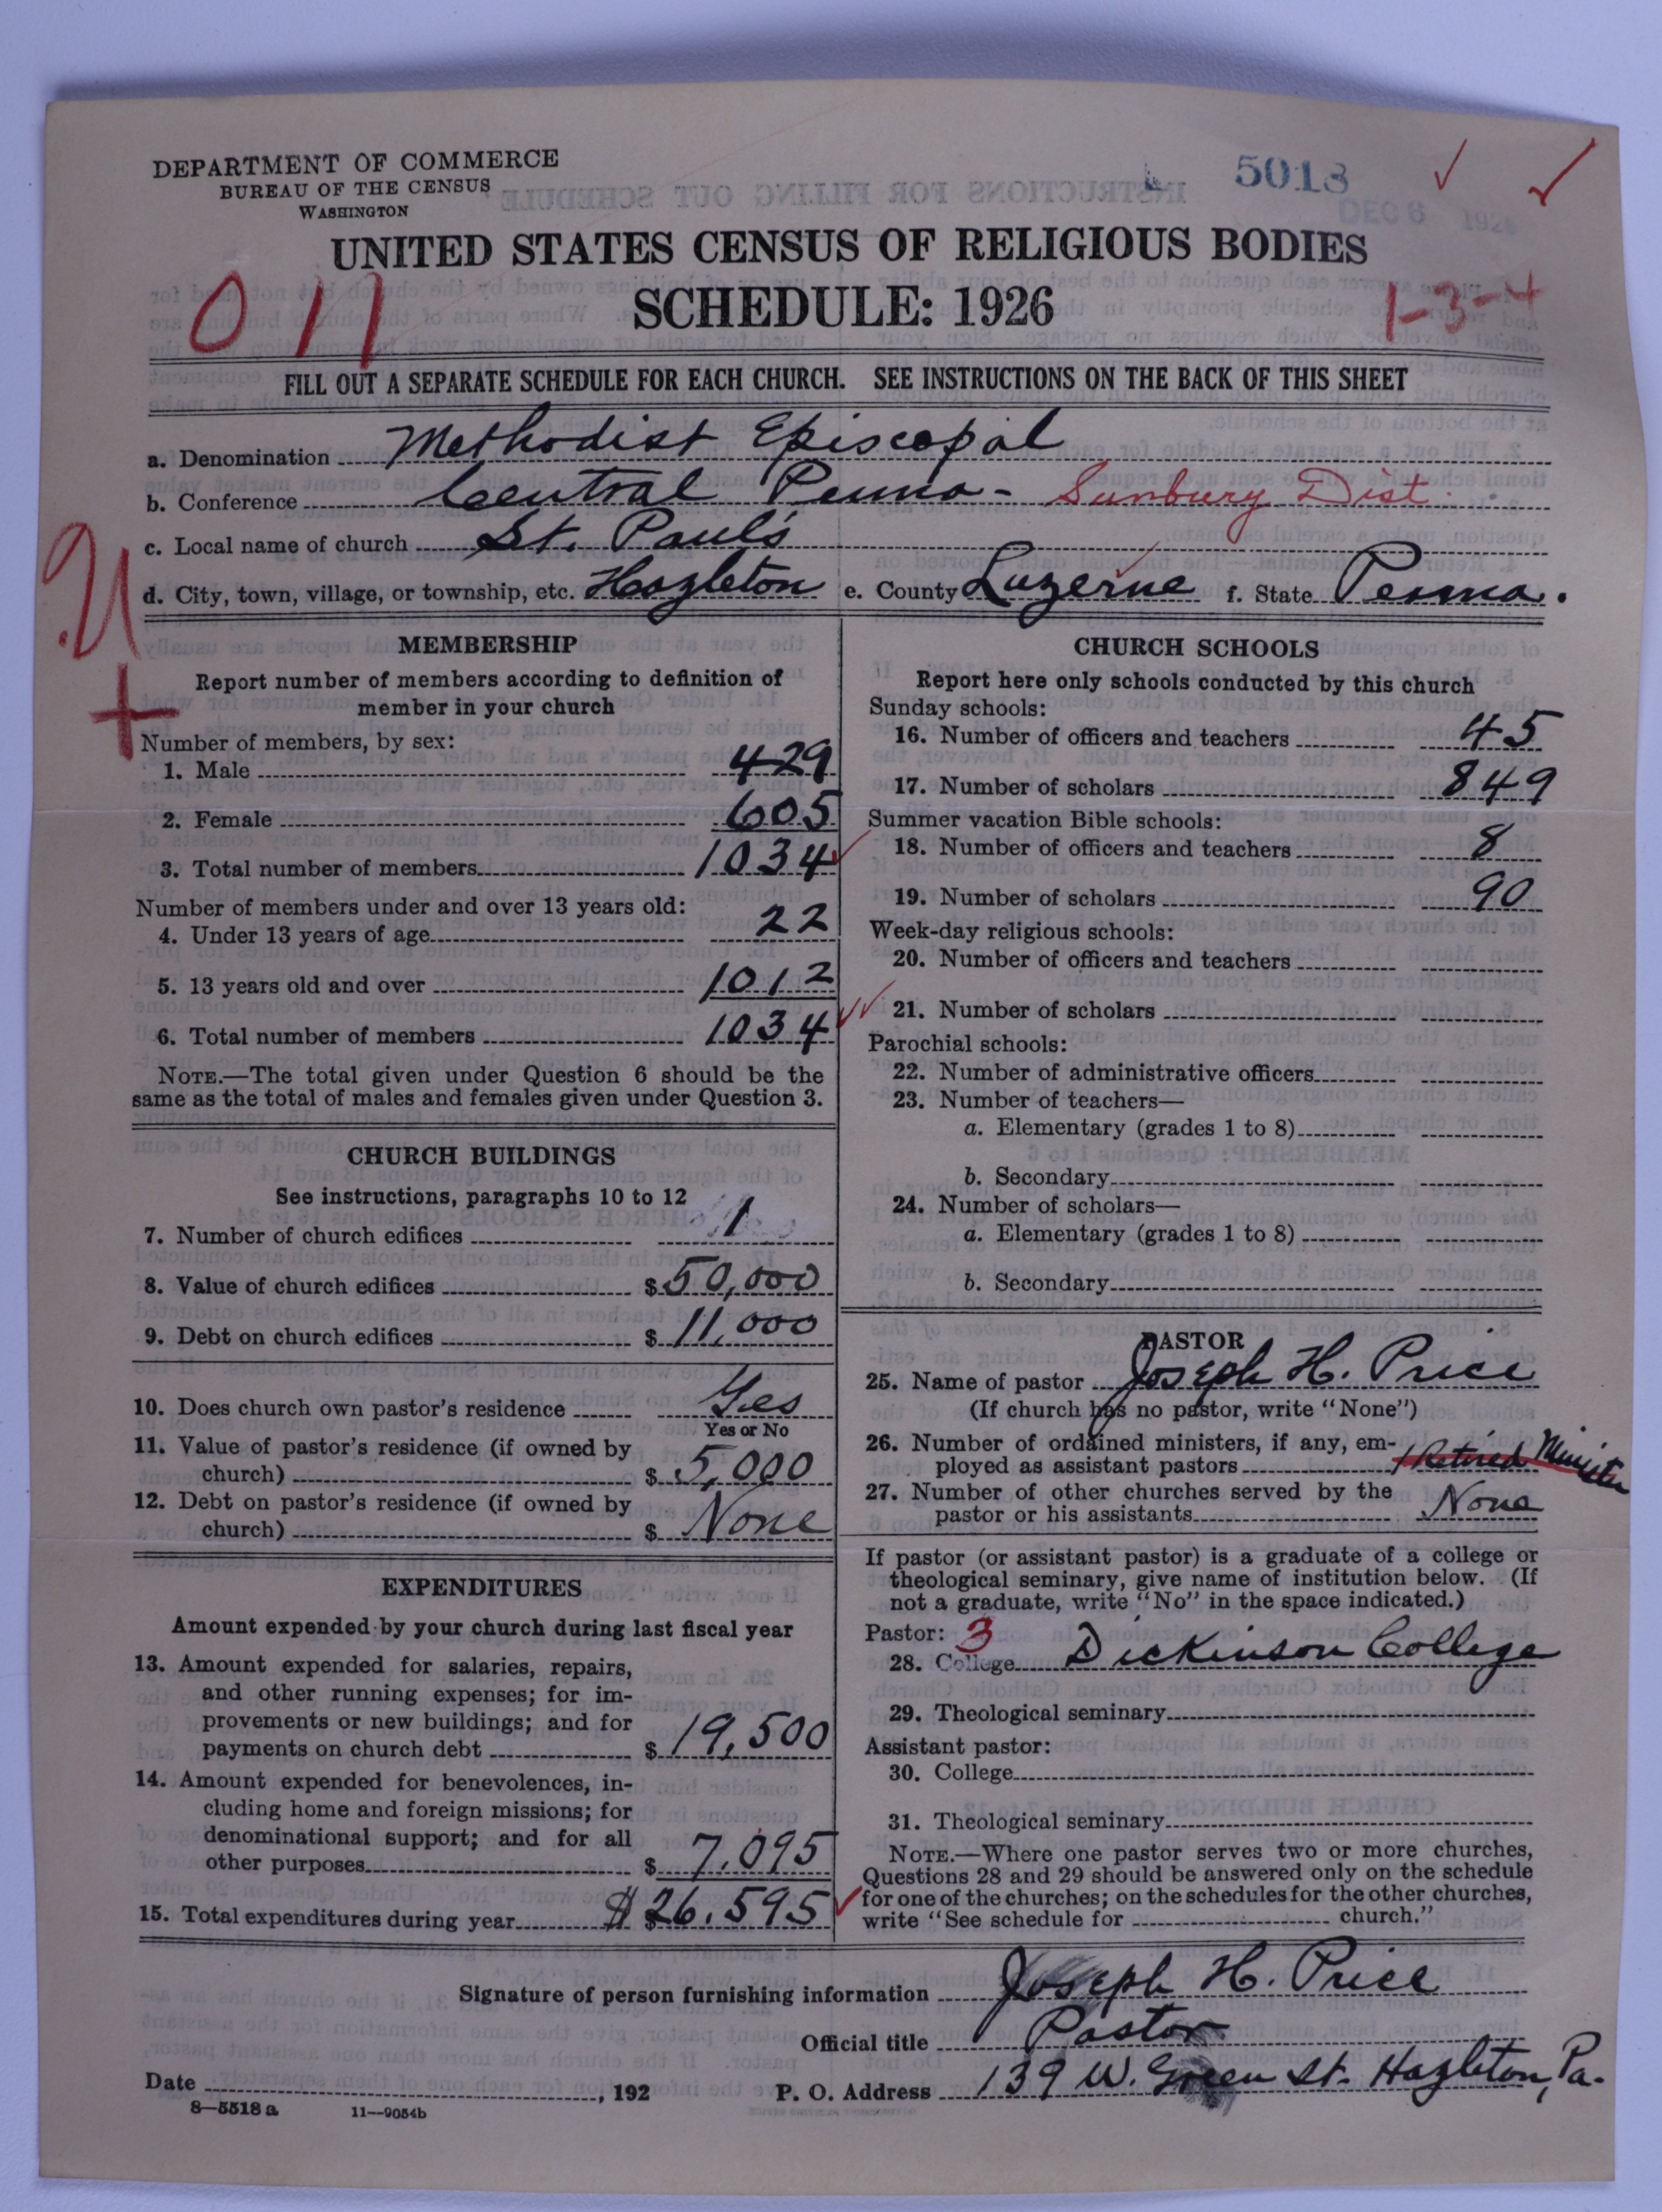 DEPARTMENT OF COMMERCE
BUREAU OF THE CENSUS
WASHINGTON
5018
DEC 6 1926
UNITED STATES CENSUS OF RELIGIOUS BODIES
SCHEDULE: 1926
011
1-3-4
FILL OUT A SEPARATE SCHEDULE FOR EACH CHURCH. SEE INSTRUCTIONS ON THE BACK OF THIS SHEET
a. Denomination Methodist Episcopal
b. Conference Central Penna - Sunbury Dist.
c. Local name of church St. Paul's
d. City, town, village, or township, etc. Hazleton e. County Luzerne f. State Penna.
U
+
MEMBERSHIP
Report number of members according to definition of
member in your church
Number of members, by sex:
1. Male 429
2. Female 605
3. Total number of members 1034
Number of members under and over 13 years old:
4. Under 13 years of age 22
5. 13 years old and over 1012
6. Total number of members 1034
NOTE.—The total given under Question 6 should be the
same as the total of males and females given under Question 3.
CHURCH BUILDINGS
See instructions, paragraphs 10 to 12
7. Number of church edifices 1
8. Value of church edifices $ 50,000
9. Debt on church edifices $ 11,000
10. Does church own pastor's residence Yes
Yes or No
11. Value of pastor's residence (if owned by
church) $ 5,000
12. Debt on pastor's residence (if owned by
church) $ None
EXPENDITURES
Amount expended by your church during last fiscal year
13. Amount expended for salaries, repairs,
and other running expenses; for im-
provements or new buildings; and for
payments on church debt $ 19,500
14. Amount expended for benevolences, in-
cluding home and foreign missions; for
denominational support; and for all
other purposes $ 7,095
15. Total expenditures during year $ $26,595
CHURCH SCHOOLS
Report here only schools conducted by this church
Sunday schools:
16. Number of officers and teachers 45
17. Number of scholars 849
Summer vacation Bible schools:
18. Number of officers and teachers 8
19. Number of scholars 90
Week-day religious schools:
20. Number of officers and teachers
21. Number of scholars
Parochial schools:
22. Number of administrative officers
23. Number of teachers—
a. Elementary (grades 1 to 8)
b. Secondary
24. Number of scholars—
a. Elementary (grades 1 to 8)
b. Secondary
PASTOR
25. Name of pastor Joseph H. Price
(If church has no pastor, write "None")
26. Number of ordained ministers, if any, em-
ployed as assistant pastors 1 Retired Minister
27. Number of other churches served by the
pastor or his assistants None
If pastor (or assistant pastor) is a graduate of a college or
theological seminary, give name of institution below. (If
not a graduate, write "No" in the space indicated.)
Pastor: 3
28. College Dickinson College
29. Theological seminary
Assistant pastor:
30. College
31. Theological seminary
NOTE.—Where one pastor serves two or more churches,
Questions 28 and 29 should be answered only on the schedule
for one of the churches; on the schedules for the other churches,
write "See schedule for church."
Signature of person furnishing information Joseph H. Price
Official title Pastor
Date , 192 P. O. Address 139 W. Green St. Hazleton, Pa.
8—5518 a 11—9054b